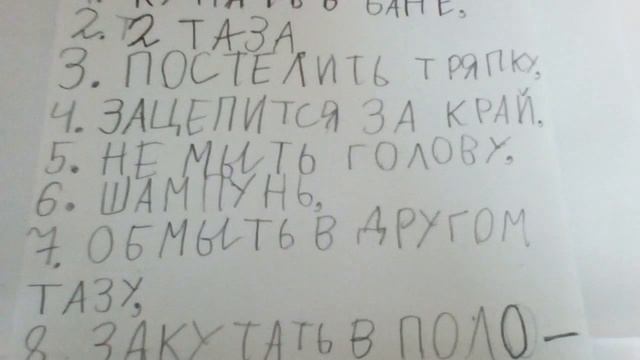 В БАНЕ,
2. 2 ТАЗА
3. ПОСТЕЛИТЬ ТРЯПКУ,
4. ЗАЦЕПИТСЯ ЗА КРАЙ,
5. НЕ МЫТЬ ГОЛОВУ,
6. ШАМПУНЬ,
7. ОБМЫТЬ В ДРУГОМ
ТАЗУ,
8. ЗАКУТАТЬ В ПОЛО-